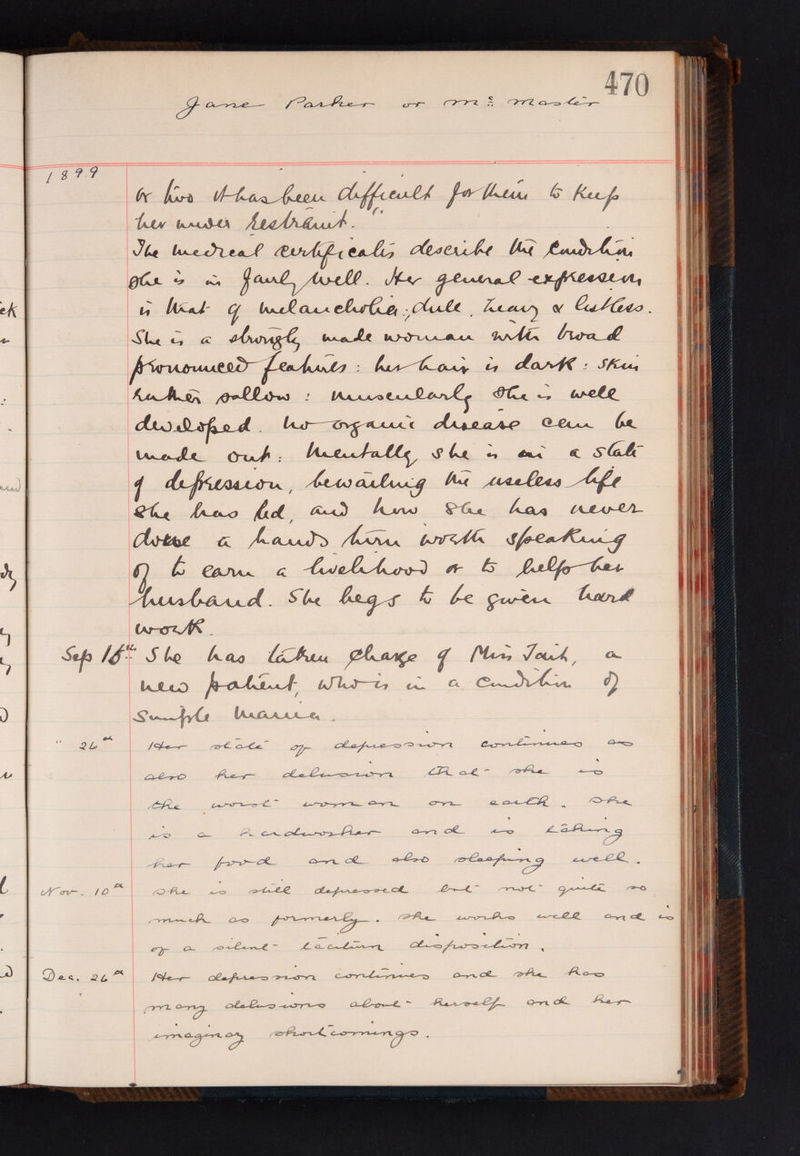 470
Jane Parker or Mc Master
1899
or two it has been difficult for them to keep
her under restraint."
The medical certificates describe the condition
she is in fairly well. Her general expression
is that of melancholia; dull, heavy & listless.
She is a strongly made woman with broad
pronounced features: her hair is dark: skin
rather sallow: muscularly she is well
developed. no organic disease can be
made out: Mentally she is in a state
of depression, bewailing the useless life
she has led, and how she has never
done a hands turn worth speaking
of to earn a livelihood or to help her
husband. She begs to be given hard
work.
Sep 15th She has taken charge of Miss Tait, a
new patient, who is in a condition of
Simple Mania.
" 26th Her state of depression continues as
also her delusion that she is
the worst woman on earth. She
is a hardworker and is taking
her food and also sleeping well.
Nov. 10th She is still depressed but not quite so
much as formerly. She works well and is
of a silent taciturn disposition.
Dec. 26th Her depression continues and she has
many delusions about herself and her
imaginay shortcomings.